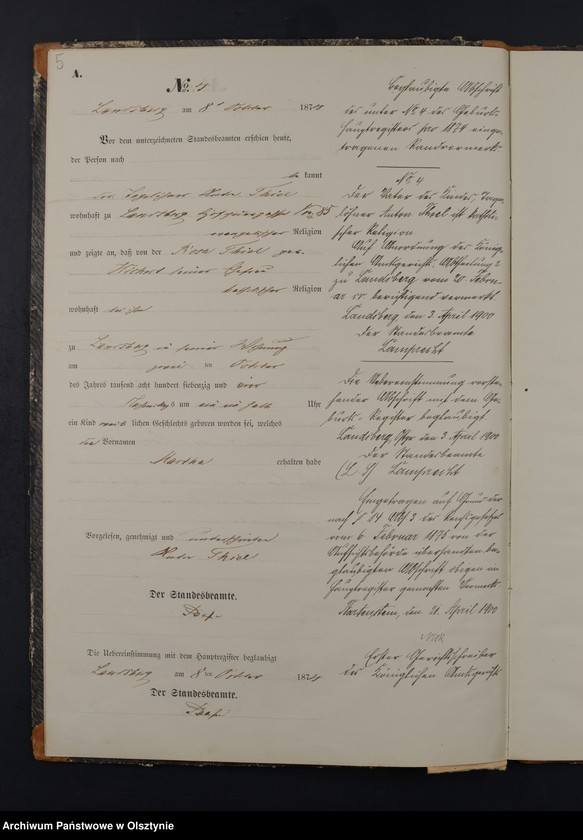 5
A.
No. 4
Landsberg am 8ten October 1874
Vor dem unterzeichneten Standesbeamten erschien heute,
der Person nach
be kannt
der Thiel
wohnhaft zu Landsberg No 85
evangelischer Religion
und zeigte an, daß von der Rosa Thiel geb.
seiner Ehefrau
katholischer Religion
wohnhaft bei ihm
zu Landsberg in seiner Wohnung
am zwei ten October
des Jahres tausend acht hundert siebenzig und vier
Nachmittags um ein ein halb Uhr
ein Kind weib lichen Geschlechts geboren worden sei, welches
den Vornamen
Martha erhalten habe
Vorgelesen, genehmigt und unterschrieben
Thiel
Der Standesbeamte.
Die Uebereinstimmung mit dem Hauptregister beglaubigt
Landsberg am 8ten October 1874
Der Standesbeamte.
Beglaubigte Abschrift
des unter No. 4 des Geburts-
hauptregisters pro 1874 einge-
tragenen Randvermerks
No. 4
Der Vater des Kindes, Tage-
löhner Anton Thiel ist katholi-
scher Religion.
Auf Anordnung des König-
lichen Amtsgerichts, Abtheilung 2
zu Landsberg vom 20. Febru-
ar cr berichtigend vermerkt
Landsberg den 3. April 1900
Der Standesbeamte
Lamprecht
Die Uebereinstimmung vorste-
hender Abschrift mit dem Ge-
burts-Register beglaubigt
Landsberg, Ostpr. den 3. April 1900
Der Standesbeamte
(L. S.) Lamprecht
Eingetragen auf Grund der
nach § 14 Abs 3 des Reichsgesetzes
vom 6. Februar 1875 von der
Aufsichtsbehörde übersandten be-
glaubigten Abschrift obigen im
Hauptregister gemachten Vermerks
Bartenstein, den 21. April 1900
Erster Gerichtsschreiber
des Königlichen Amtsgerichts
Archiwum Państwowe w Olsztynie